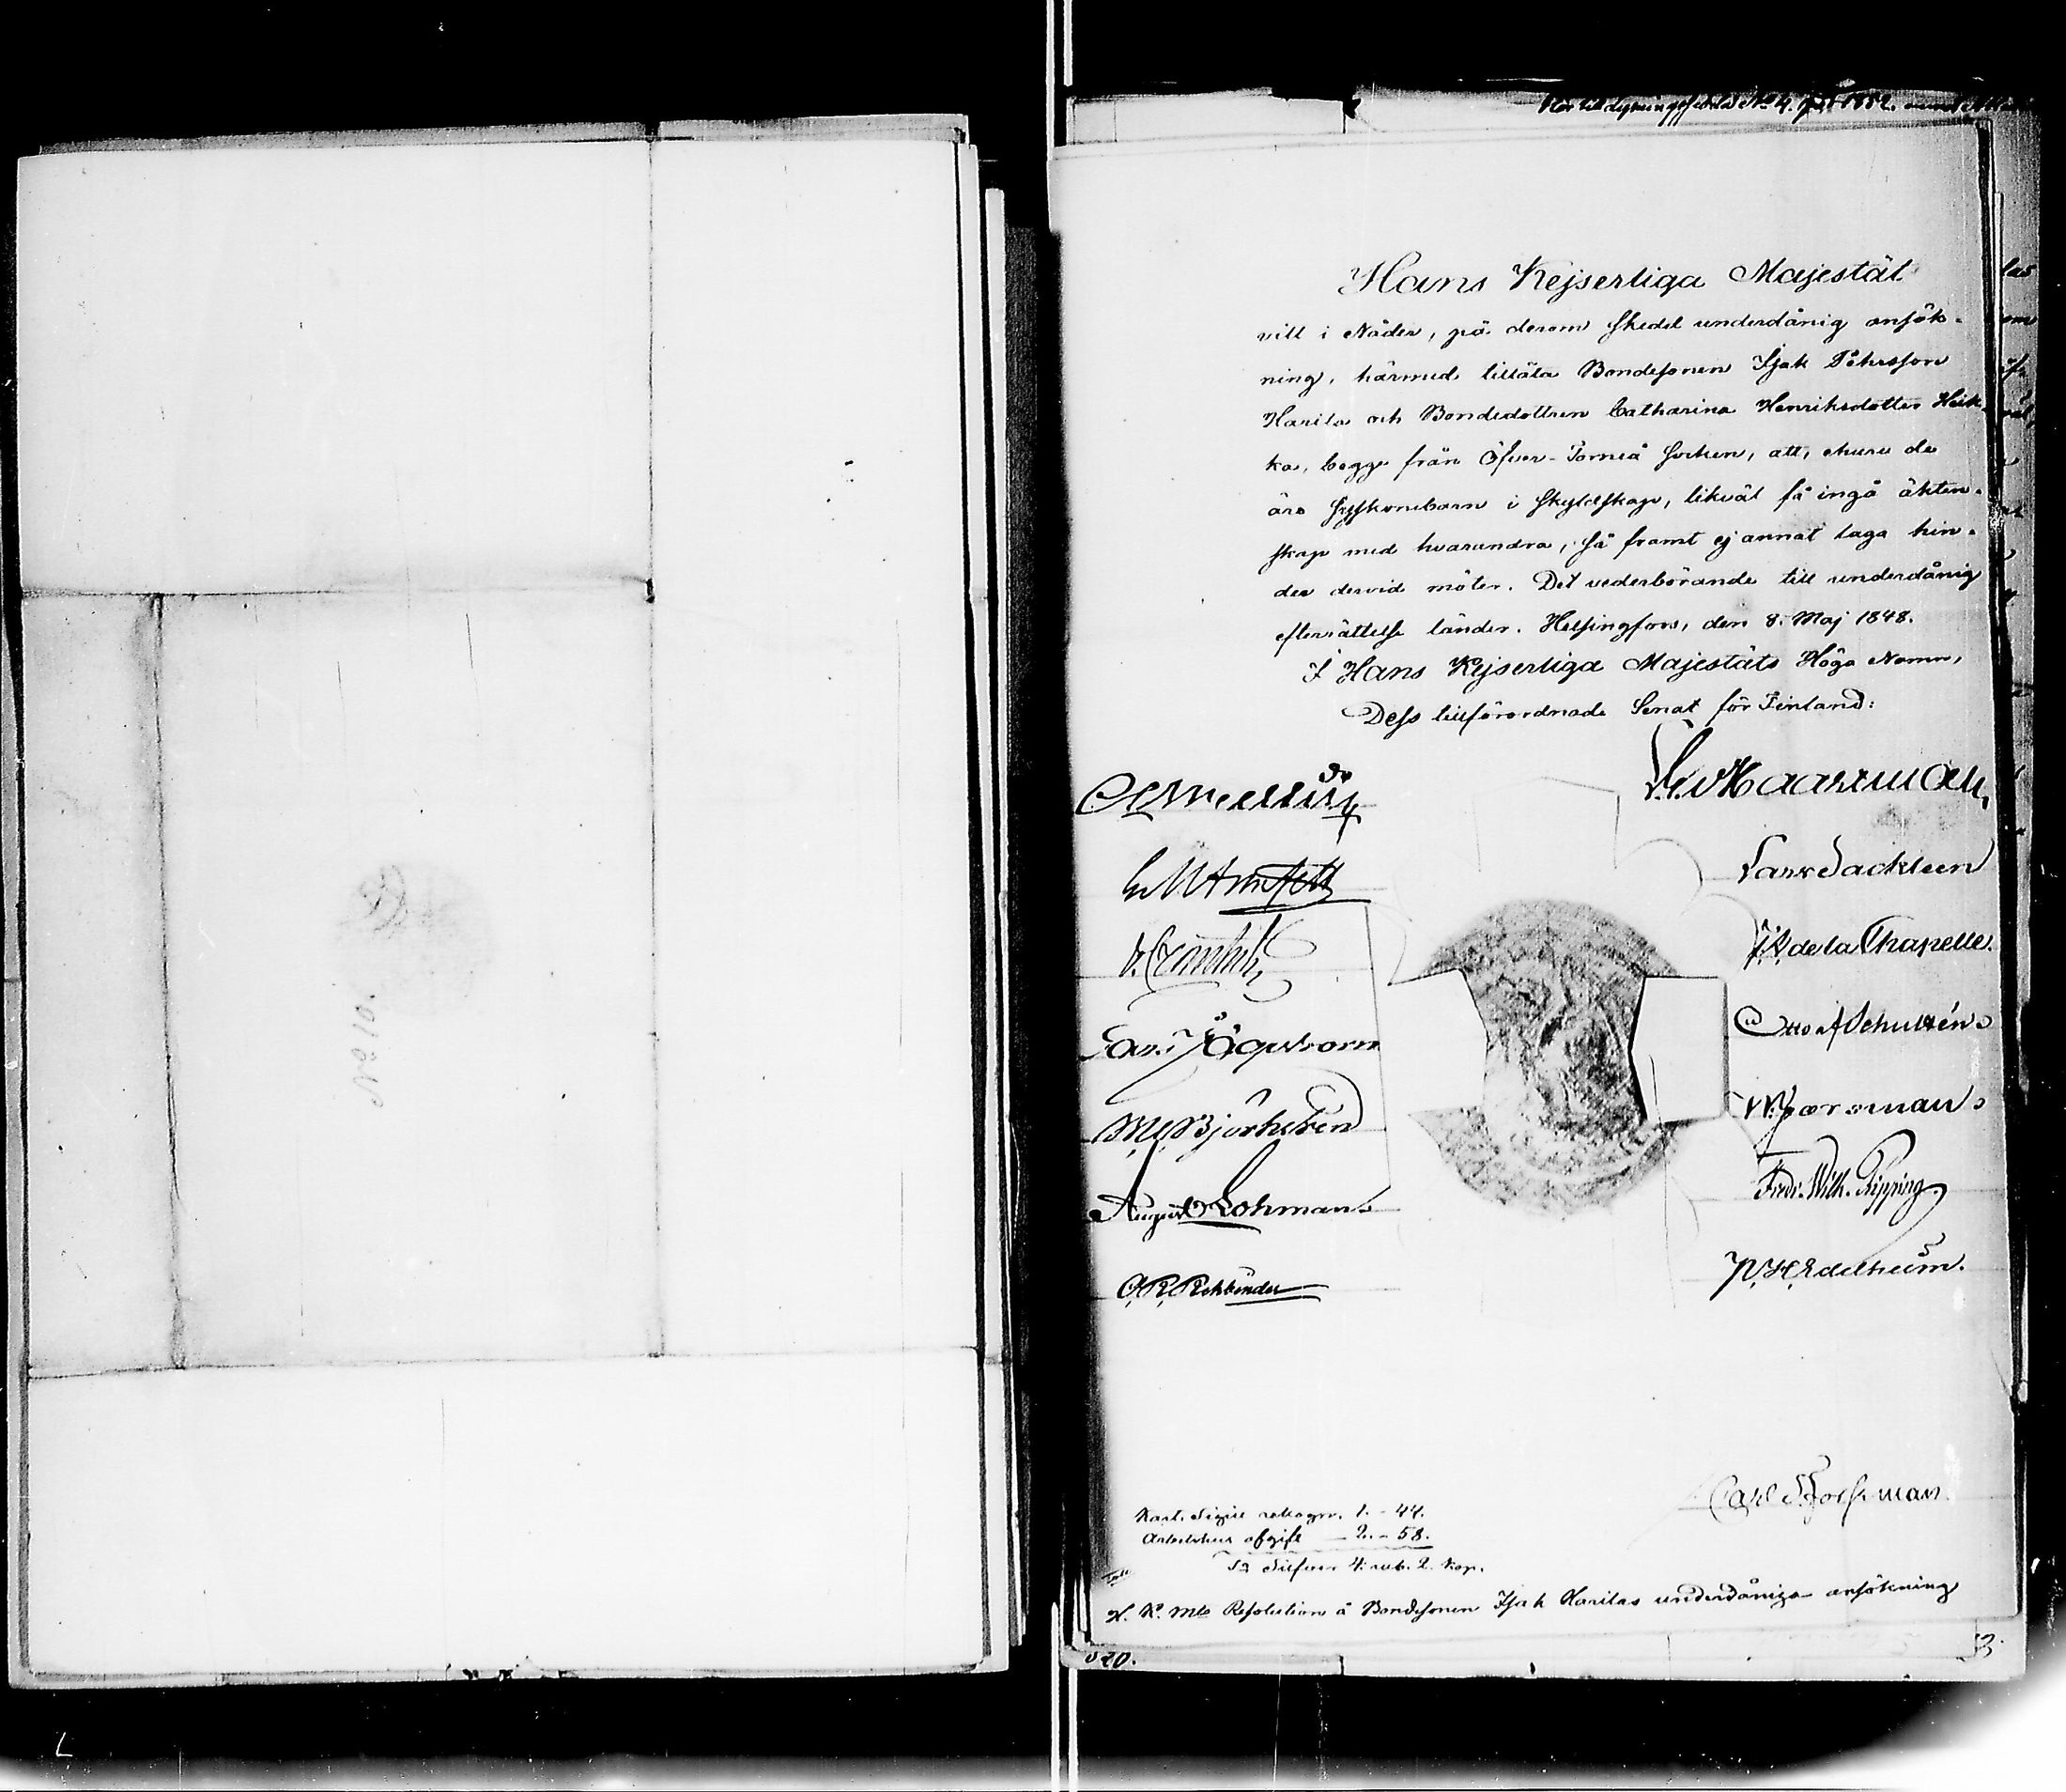 Hans Kejserliga Majestät
vill i Nåder, på derom skedd underdånig ansök-
ning, härmed tillåta Bondesonen Isak Pehrsson
Harila och Bondedottren Catharina Henriksdotter Heik-
ka, begge från Öfver-Torneå socken, att, ehuru de
äro syskonebarn i skyldskap, likväl få ingå äkten-
skap med hvarandra, så framt ej annat laga hin-
der dervid möter. Det vederbörande till underdånig
efterrättelse länder. Helsingfors, den 8. Maj 1848.
I Hans Kejserliga Majestäts Höga Namn,
Dess tillförordnade Senat för Finland:
L. G. v Haartman,
Lars Sackleen
J. A. de la Chapelle.
Otto af Schultén
Fredr. Wilh. Pipping.
P. H. Edelheim.
August Lohman
O. R. Rehbinder
Carl Forssman
Kart. Sigill rekogn. 1. - 44.
Arbetshus afgift - 2. - 58.
Sa Silfver 4. rub. 2. Kop.
H. K. Mts Resolution å Bondesonen Isak Harilas underdåniga ansökning
No 10.